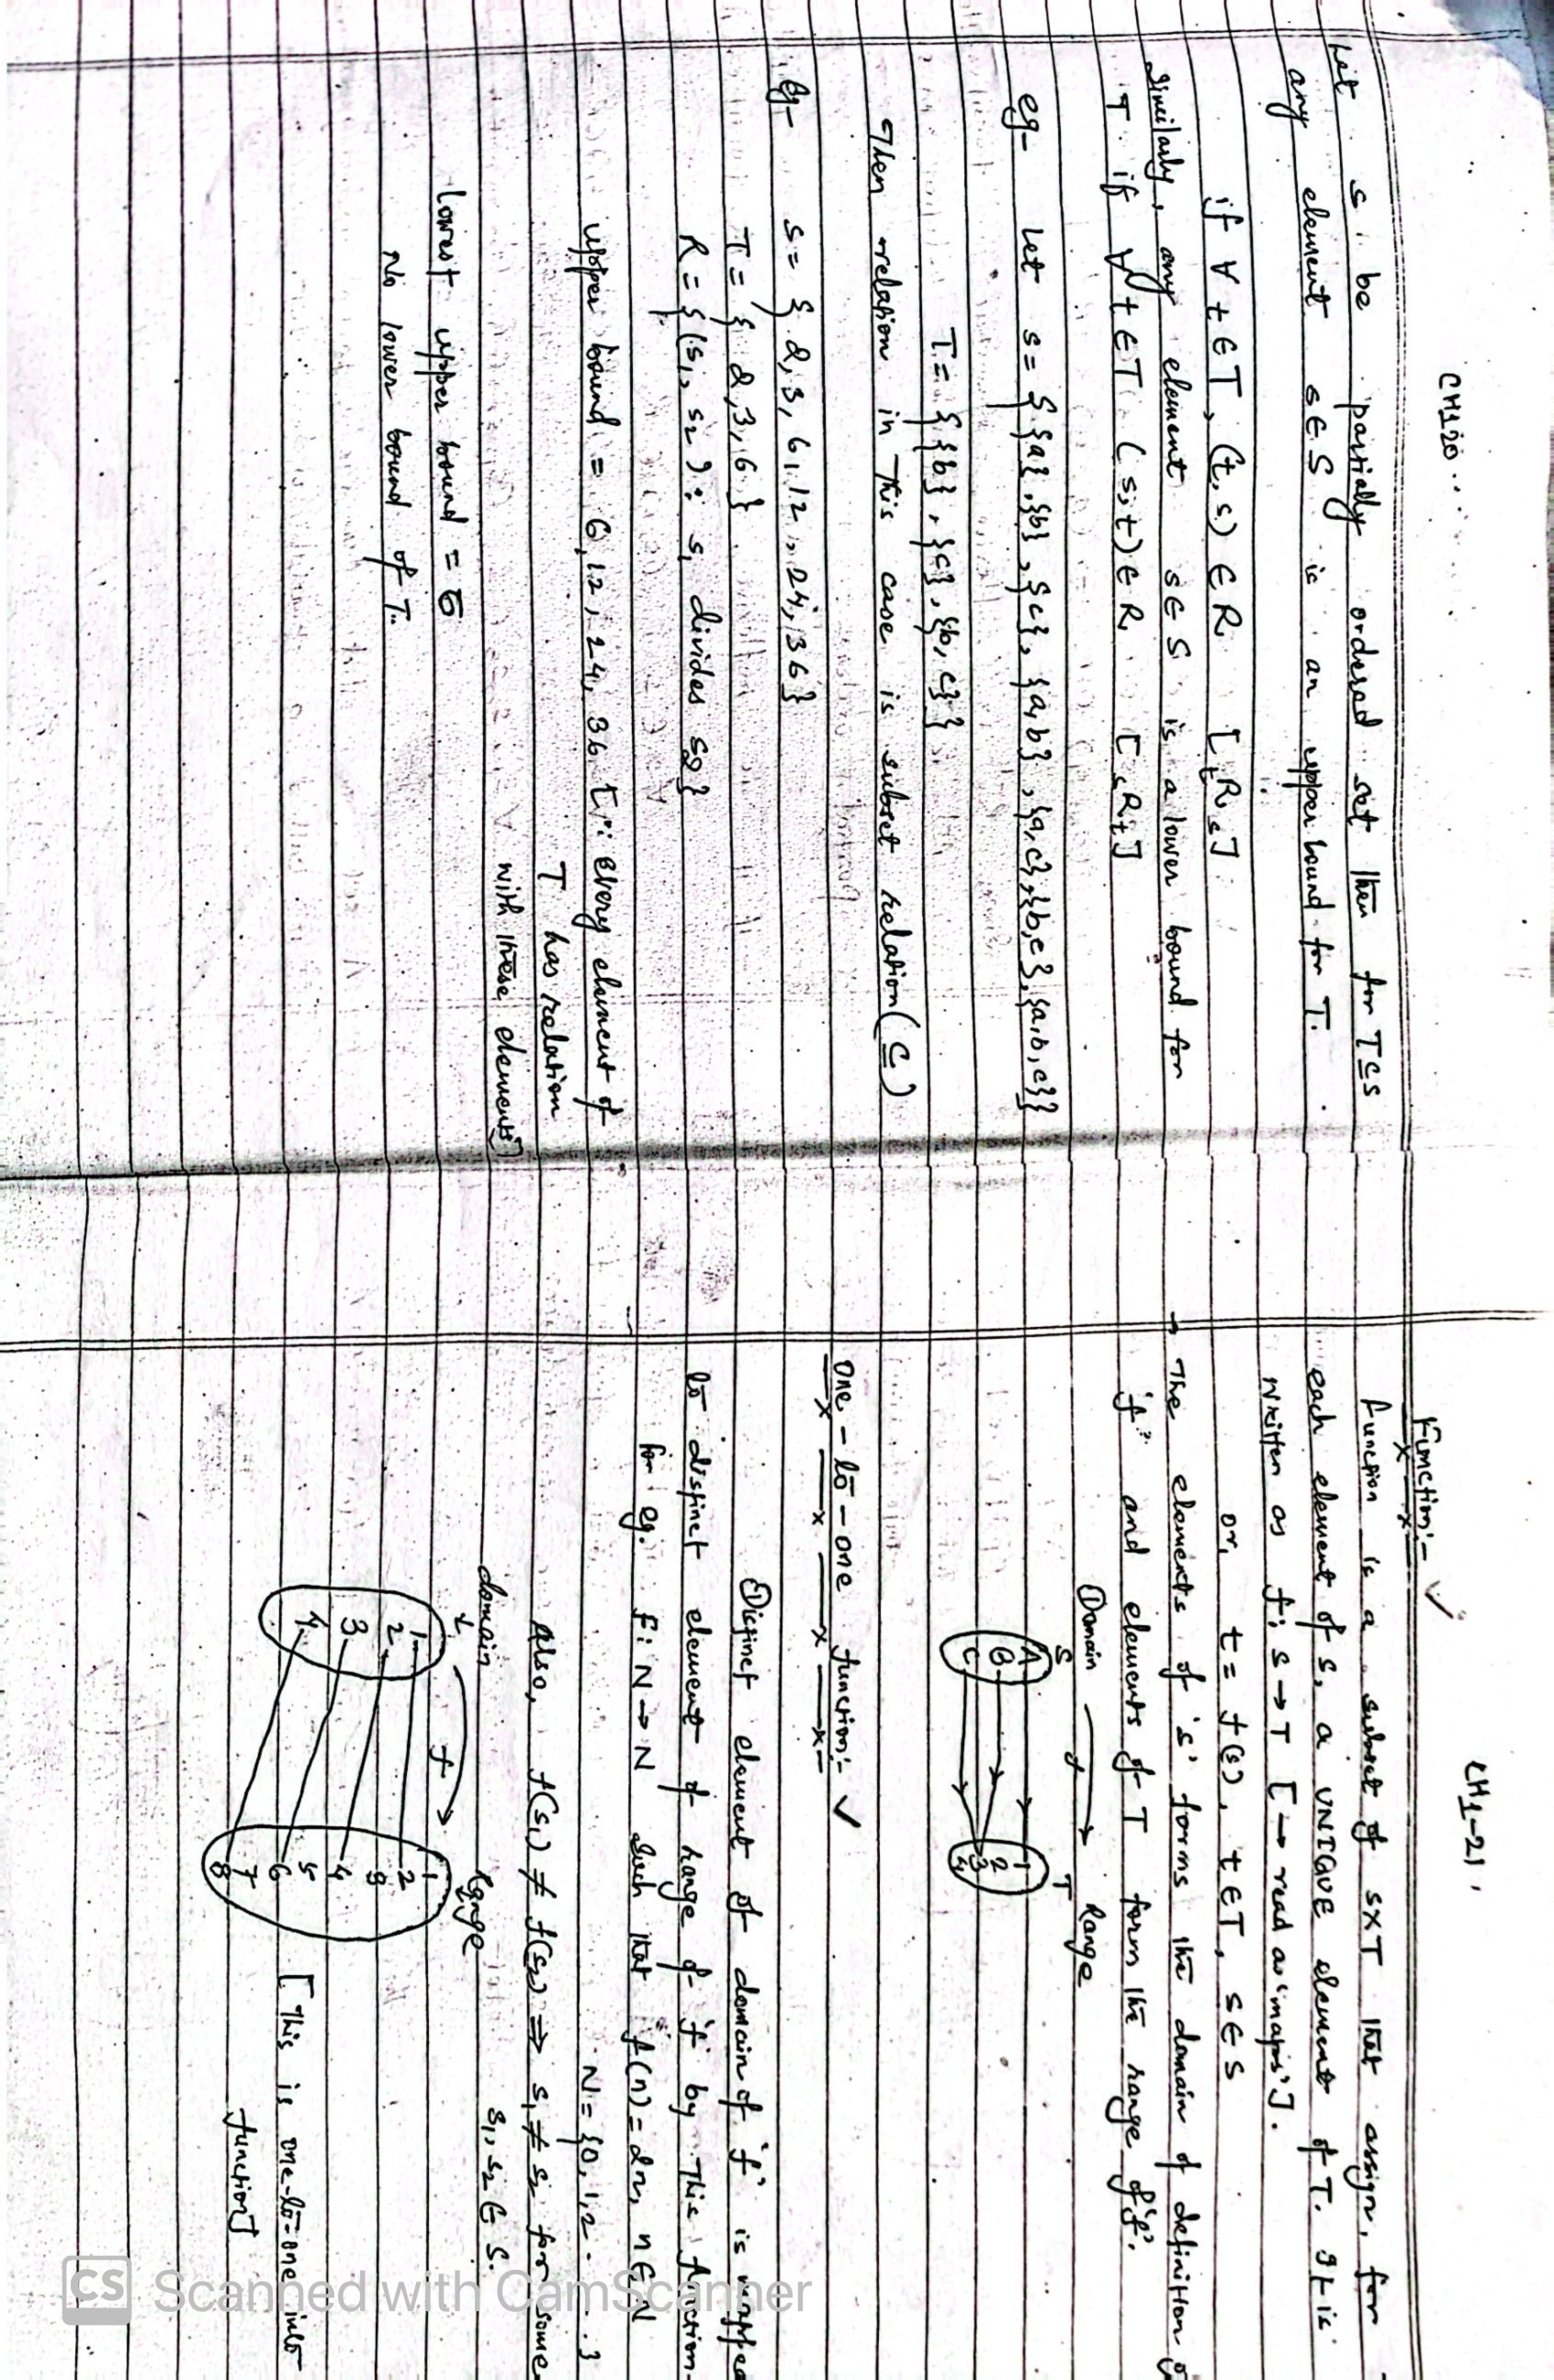 CH1 20...
Let S be partially ordered set then for T⊆S
any element s∈S is an upper bound for T.
if ∀ t∈T, (t,s) ∈ R [tRs]
Similarly, any element s∈S is a lower bound for
T if ∀ t∈T (s,t)∈R [sRt]
eg- Let S = {{a},{b},{c},{a,b},{a,c},{b,c},{a,b,c}}
T = {{b},{c},{b,c}}
Then relation in This case is subset relation (⊆)
eg- S = {2,3,6,12,24,36}
T = {2,3,6}
R = {(s₁,s₂): s₁ divides s₂}
upper bound = 6,12,24,36 [∵ every element of
T has relation
with these elements]
lowest upper bound = 6
No lower bound of T.
CH1-21.
Function:- ✓
Function is a subset of S×T that assign, for
each element of S, a UNIQUE element of T. It is
written as f: S→T [→ read as 'maps'].
or, t = f(s), t∈T, s∈S
→ The elements of 'S' forms the domain of definition of
'f' and elements of T form the range of 'f'.
Domain Range
S f T
A 1
B 2
C 3
4
One-to-one function:- ✓
Distinct element of domain of 'f' is mapped
to distinct element of range of 'f' by This function.
for eg. f: N→N such that f(n)=2n, n∈N
N = {0,1,2....}
Also, f(s₁) ≠ f(s₂) ⇒ s₁ ≠ s₂ for some
s₁, s₂ ∈ S.
domain Range
f
1 1
2 2
3 3
4 4
5
6
7
8
[This is one-to-one into
function]
CS Scanned with CamScanner